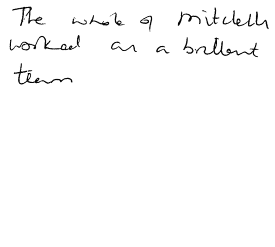 The whole of Mitchells
worked as a brillent
team